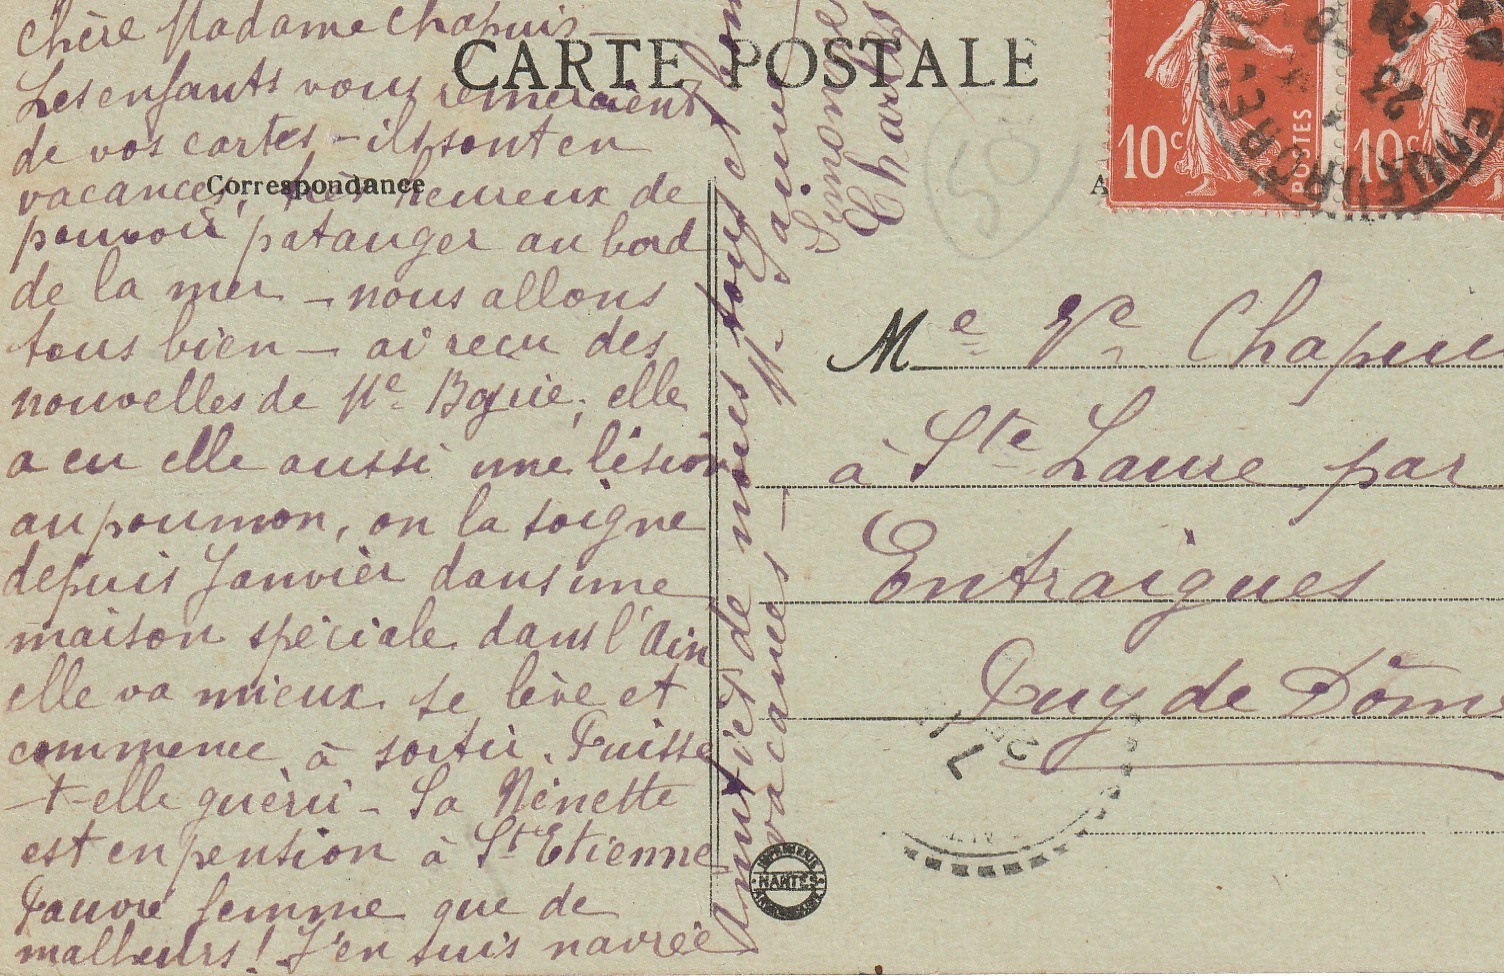 CARTE POSTALE
Correspondance
chère Madame Chapuis -
Les enfants vous remercient
de vos cartes - ils sont en
vacances, très heureux de
pouvoir patauger au bord
de la mer - nous allons
tous bien - ai reçu des
nouvelles de Me
elle
a eu elle aussi une lésion
au poumon, on la soigne
depuis Janvier dans une
maison spéciale dans l'Ain
elle va mieux se lève et
commence à sortir. Puisse
-t-elle guérir - Sa Ninette
est en pension à St Etienne
Pauvre femme que de
malheurs! J'en suis navrée
Amitiés de nous tous et bonnes
vacances -
Simone
Charles
50
10c POSTES
10c
A
Me Ve Chapuis
à Ste Laure par
Entraigues
Puy de Dôme
IMPRIMERIE
NANTES